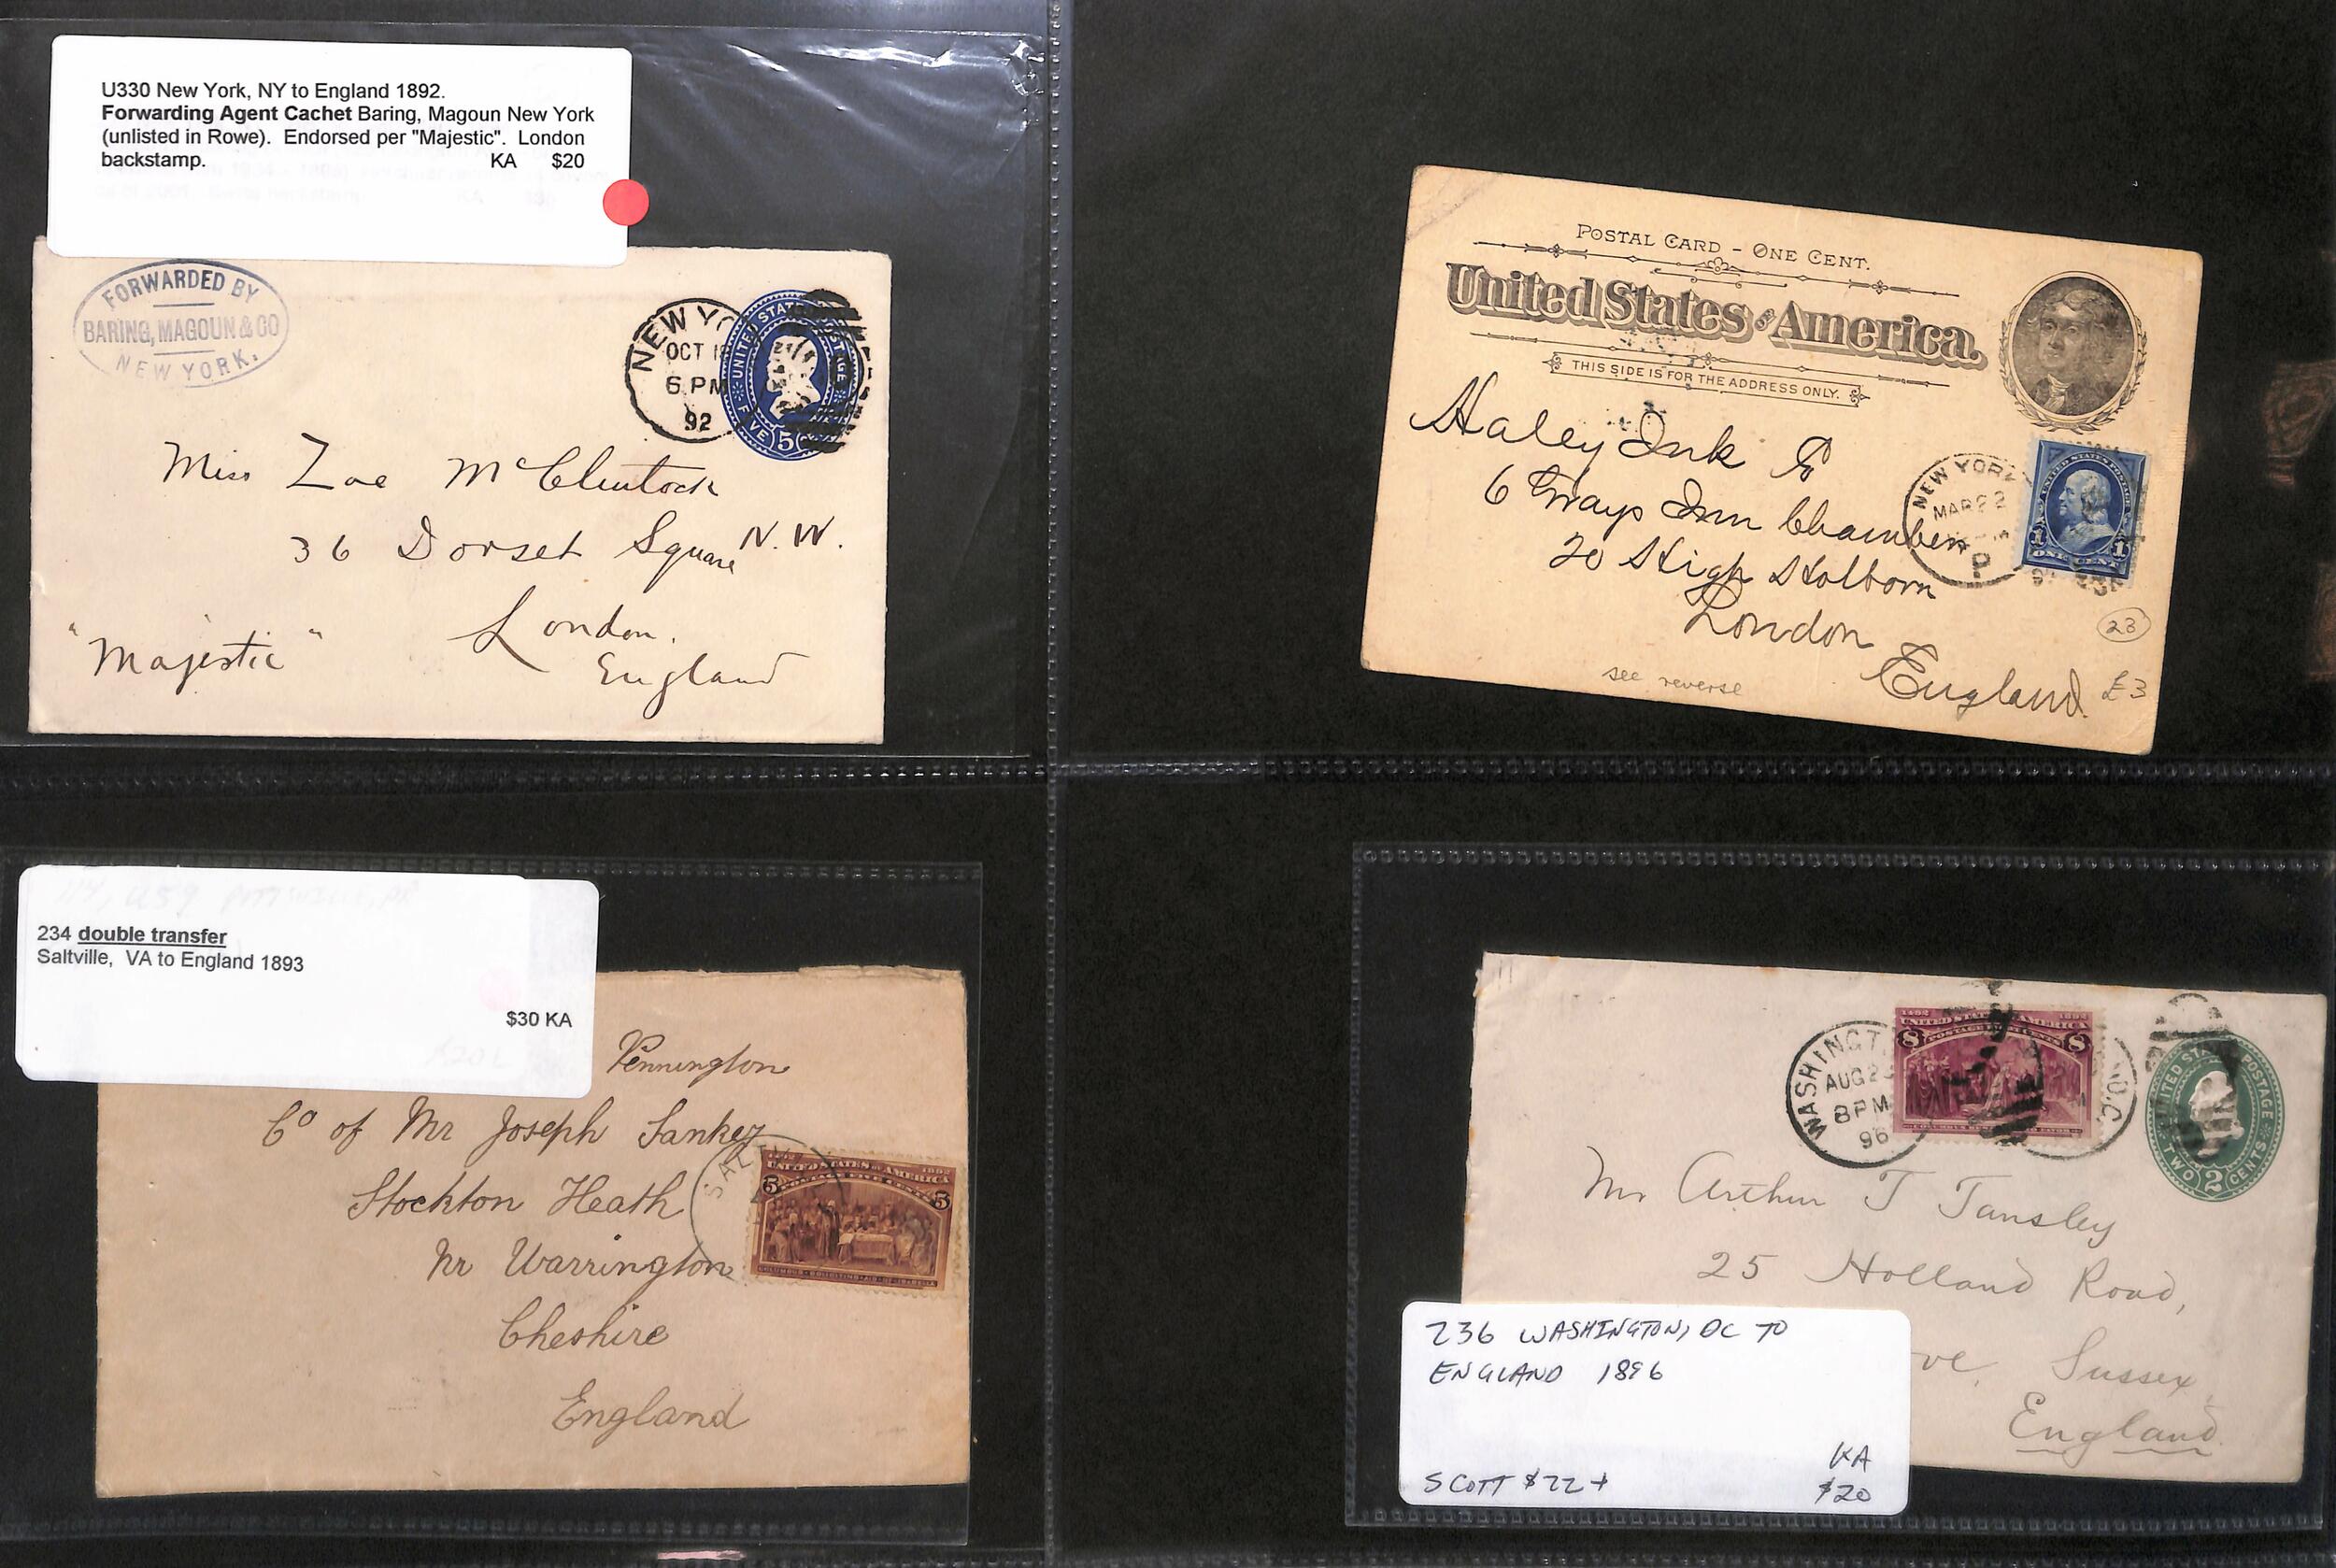 U330 New York, NY to England 1892.
Forwarding Agent Cachet Baring, Magoun New York
(unlisted in Rowe). Endorsed per "Majestic". London
backstamp. KA $20
FORWARDED BY
BARING, MAGOUN & CO
NEW YORK.
NEW YO
OCT 18
6 PM
92
UNITED STATES POSTAGE
FIVE 5
Miss Zoe McClintock
36 Dorset Square N.W.
London.
England
"Majestic"
POSTAL CARD - ONE CENT.
United States of America.
THIS SIDE IS FOR THE ADDRESS ONLY.
Haley Ink Co
6 Grays Inn Chambers
20 High Holborn
London
England.
NEW YORK
MAR 22
P
UNITED STATES POSTAGE
1 ONE CENT 1
23
£3
see reverse
234 double transfer
Saltville, VA to England 1893
$30 KA
Pennington
Co of Mr Joseph Sankey
Stockton Heath
Nr Warrington
Cheshire
England
SALT
1492 1892
UNITED STATES OF AMERICA
5 POSTAGE FIVE CENTS 5
COLUMBUS SOLICITING AID OF ISABELLA
WASHINGT D.C.
AUG 2
8 PM
96
1492 1892
UNITED STATES OF AMERICA
8 POSTAGE CENTS 8
UNITED STA POSTAGE
TWO 2 CENTS
Mr Arthur T Tansley
25 Holland Road,
ove, Sussex,
England.
236 WASHINGTON, DC TO
ENGLAND 1896
KA
SCOTT $22+ $20